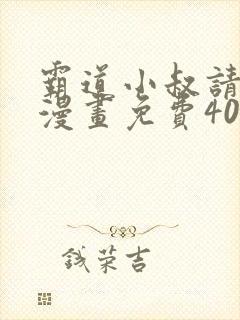 霸道小叔請
漫畫免費40
錢荣吉